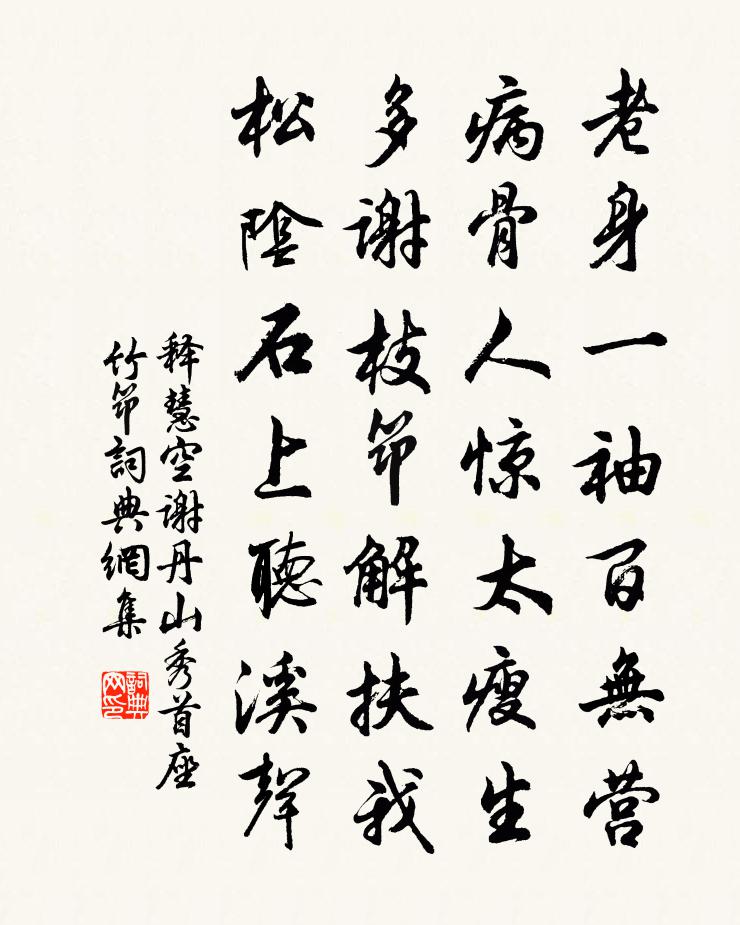 老身一袖百無营
病骨人惊太瘦生
多谢枝筇解扶我
松陰石上聽溪聲
释慧空谢丹山秀首座
竹筇詞典網集
詞典网印